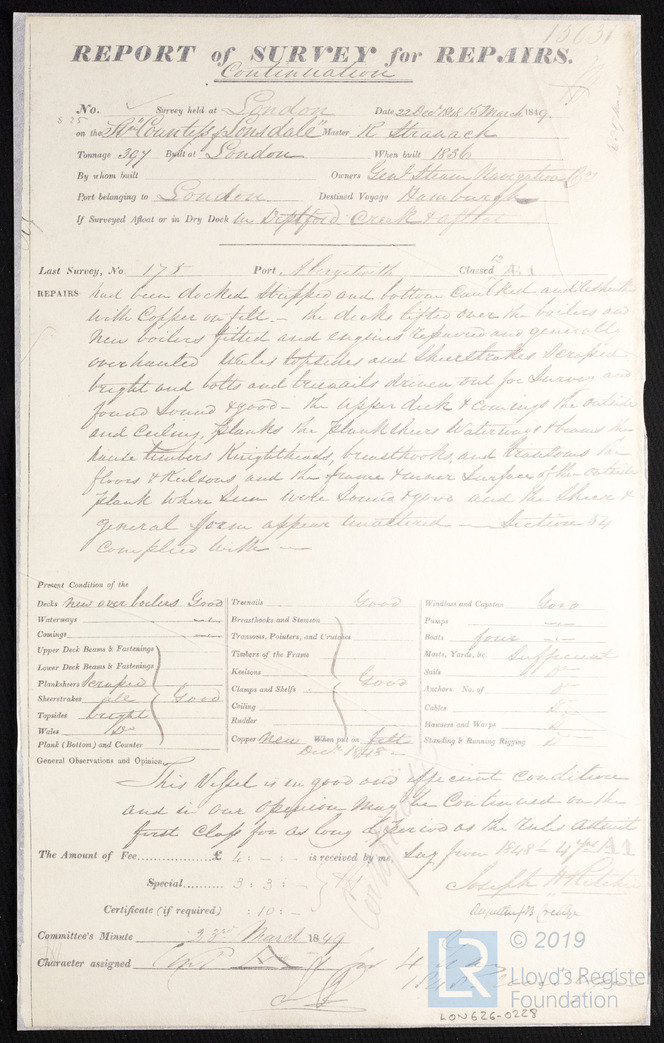 REPORT of SURVEY for REPAIRS.
Continuation
No. Survey held at London Date 22 Decr 1848 15 March 1849
on the Str "Countess of Lonsdale" Master R Stranack
Tonnage 307 Built at London When built 1836
By whom built Owners Genl Steam Navigation Co
Port belonging to London Destined Voyage Hamburgh
If Surveyed Afloat or in Dry Dock in Deptford Creek & afloat
Last Survey, No. 175 Port Aberystwith Classed 12 A.1
REPAIRS had been docked stripped and bottom Caulked and resheathed
with Copper on felt. - the decks lifted over the boilers and
new boilers fitted and engines repaired and generally
overhauled Wales topsides and Sheerstrakes scraped
bright and bolts and treenails driven out for Survey and
found Sound & good - the upper deck & comings the outside
and Ceiling, planks the plank sheers Waterways & beams the
hawse timbers Knightheads, breasthooks, and transoms the
floors & Keelsons and the frame & inner Surface of the outside
plank where Seen were Sound & good and the Sheer &
general form appear unaltered - Section 54
Complied with -
Present Condition of the
Decks New over boilers Good
Waterways
Comings
Upper Deck Beams & Fastenings
Lower Deck Beams & Fastenings
Planksheers Scraped
Sheerstrakes all Good
Topsides bright
Wales Do
Plank (Bottom) and Counter
Treenails Good
Breasthooks and Stemson
Transoms, Pointers, and Crutches
Timbers of the Frame
Keelsons
Clamps and Shelfs Good
Ceiling
Rudder
Copper New When put on felt
Decr 1848
Windlass and Capstan Good
Pumps
Boats four
Masts, Yards, &c. Sufficient
Sails
Anchors No. of
Cables
Hawsers and Warps
Standing & Running Rigging
General Observations and Opinion,
This Vessel is in good and efficient condition
and in our opinion may be Continued on the
first Class for as long a period as the rules admit
The Amount of Fee £ 4 : - : - is received by me, Say from 1848 - 4 yrs A1
Special 3 : 3 : -
Joseph H Ritchie
Certificate (if required) : 10 : -
Augustin F B Creuze
Committee's Minute 23rd March 1849
Character assigned
for 4
LR © 2019
Lloyd's Register
Foundation
LON626-0228